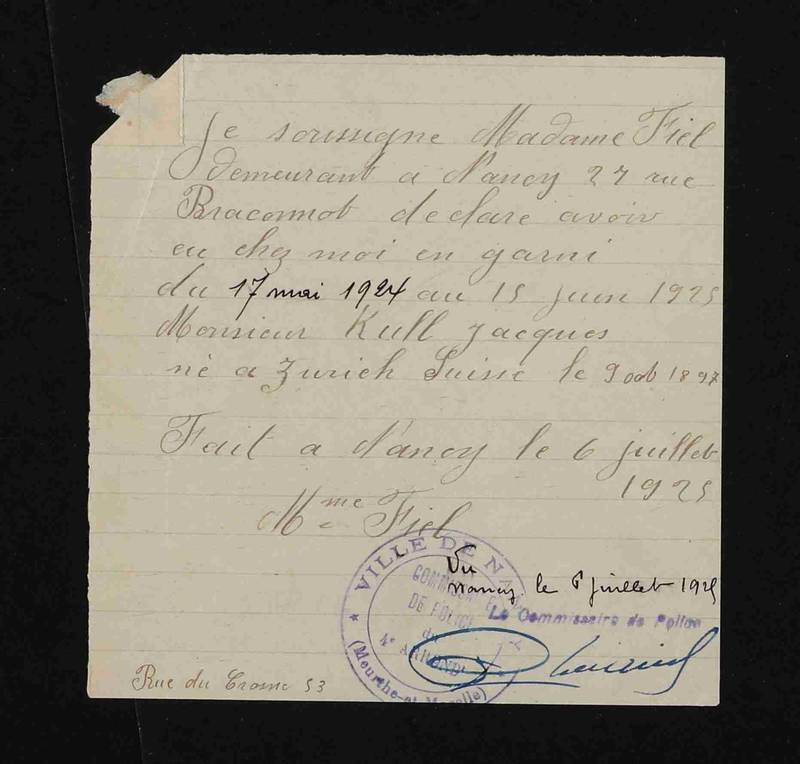 Je soussigne Madame Fiel
demeurant a Nancy 27 rue
Braconnot declare avoir
eu chez moi en garni
du 17 mai 1924 au 15 juin 1925
Monsieur Kull Jacques
né a Zurich Suisse le 9 oct 1897
Fait a Nancy le 6 juillet
1925
Mme Fiel
VILLE DE NANCY
COMMISSARIAT
DE POLICE
du
4e ARRONDt
(Meurthe-et-Moselle)
Vu
Nancy le 6 juillet 1925
Le Commissaire de Police
Rue du Crosne 53